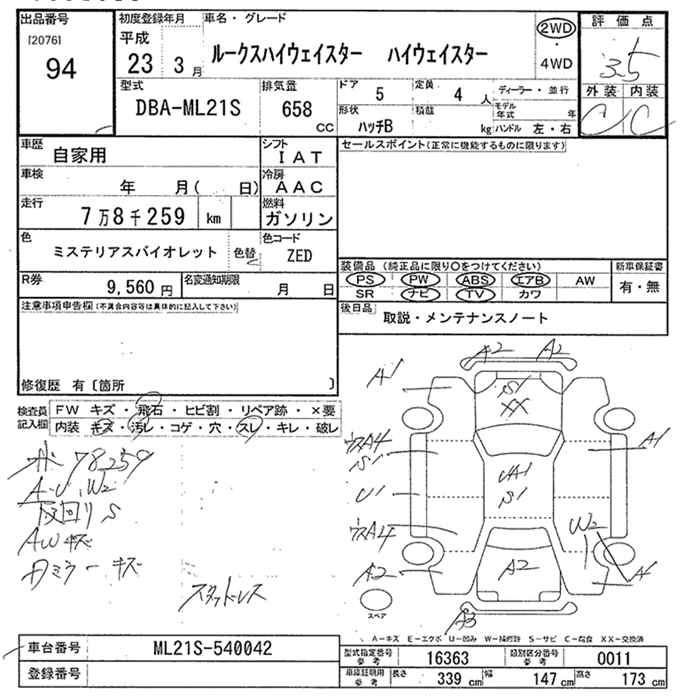 出品番号
[2076]
94
初度登録年月
平成
23 3月
車名・グレード
ルークスハイウェイスター ハイウェイスター
2WD
・
4WD
評価点
3.5
外装 内装
C C
型式
DBA-ML21S
排気量
658
cc
ドア
5
定員
4人
形状
ハッチB
積載
kg
ディーラー・並行
モデル年式 年
ハンドル 左・右
車歴
自家用
シフト
IAT
車検
年 月( 日)
冷房
AAC
走行
7万8千259 km
燃料
ガソリン
色
ミステリアスバイオレット
色替
色コード
ZED
R券
9,560円
名変通知期限
月 日
セールスポイント(正常に機能するものに限ります)
装備品 (純正品に限り○をつけてください)
PS PW ABS エアB AW
SR ナビ TV カワ
新車保証書
有・無
後日品
取説・メンテナンスノート
注意事項申告欄(不具合内容等は具体的に記入して下さい)
修復歴 有〔箇所 〕
検査員
記入欄
FW キズ・飛石・ヒビ割・リペア跡・×要
内装 キズ・汚レ・コゲ・穴・スレ・キレ・破レ
78259
A・U、W2
反回り S
AWキズ
Dミラーキズ
スタッドレス
A2 A2
A1
S1
XX
ウスA4
S1
A1
UA1
S1
U1
ウスA4
W2
A2
A2
A1
A3
スペア
A-キズ E-エクボ U-凹み W-補修跡 S-サビ C-腐食 XX-交換済
車台番号
ML21S-540042
登録番号
型式指定番号
参考
16363
類別区分番号
参考
0011
車庫証明用
参考
長さ 339cm
幅 147cm
高さ 173cm